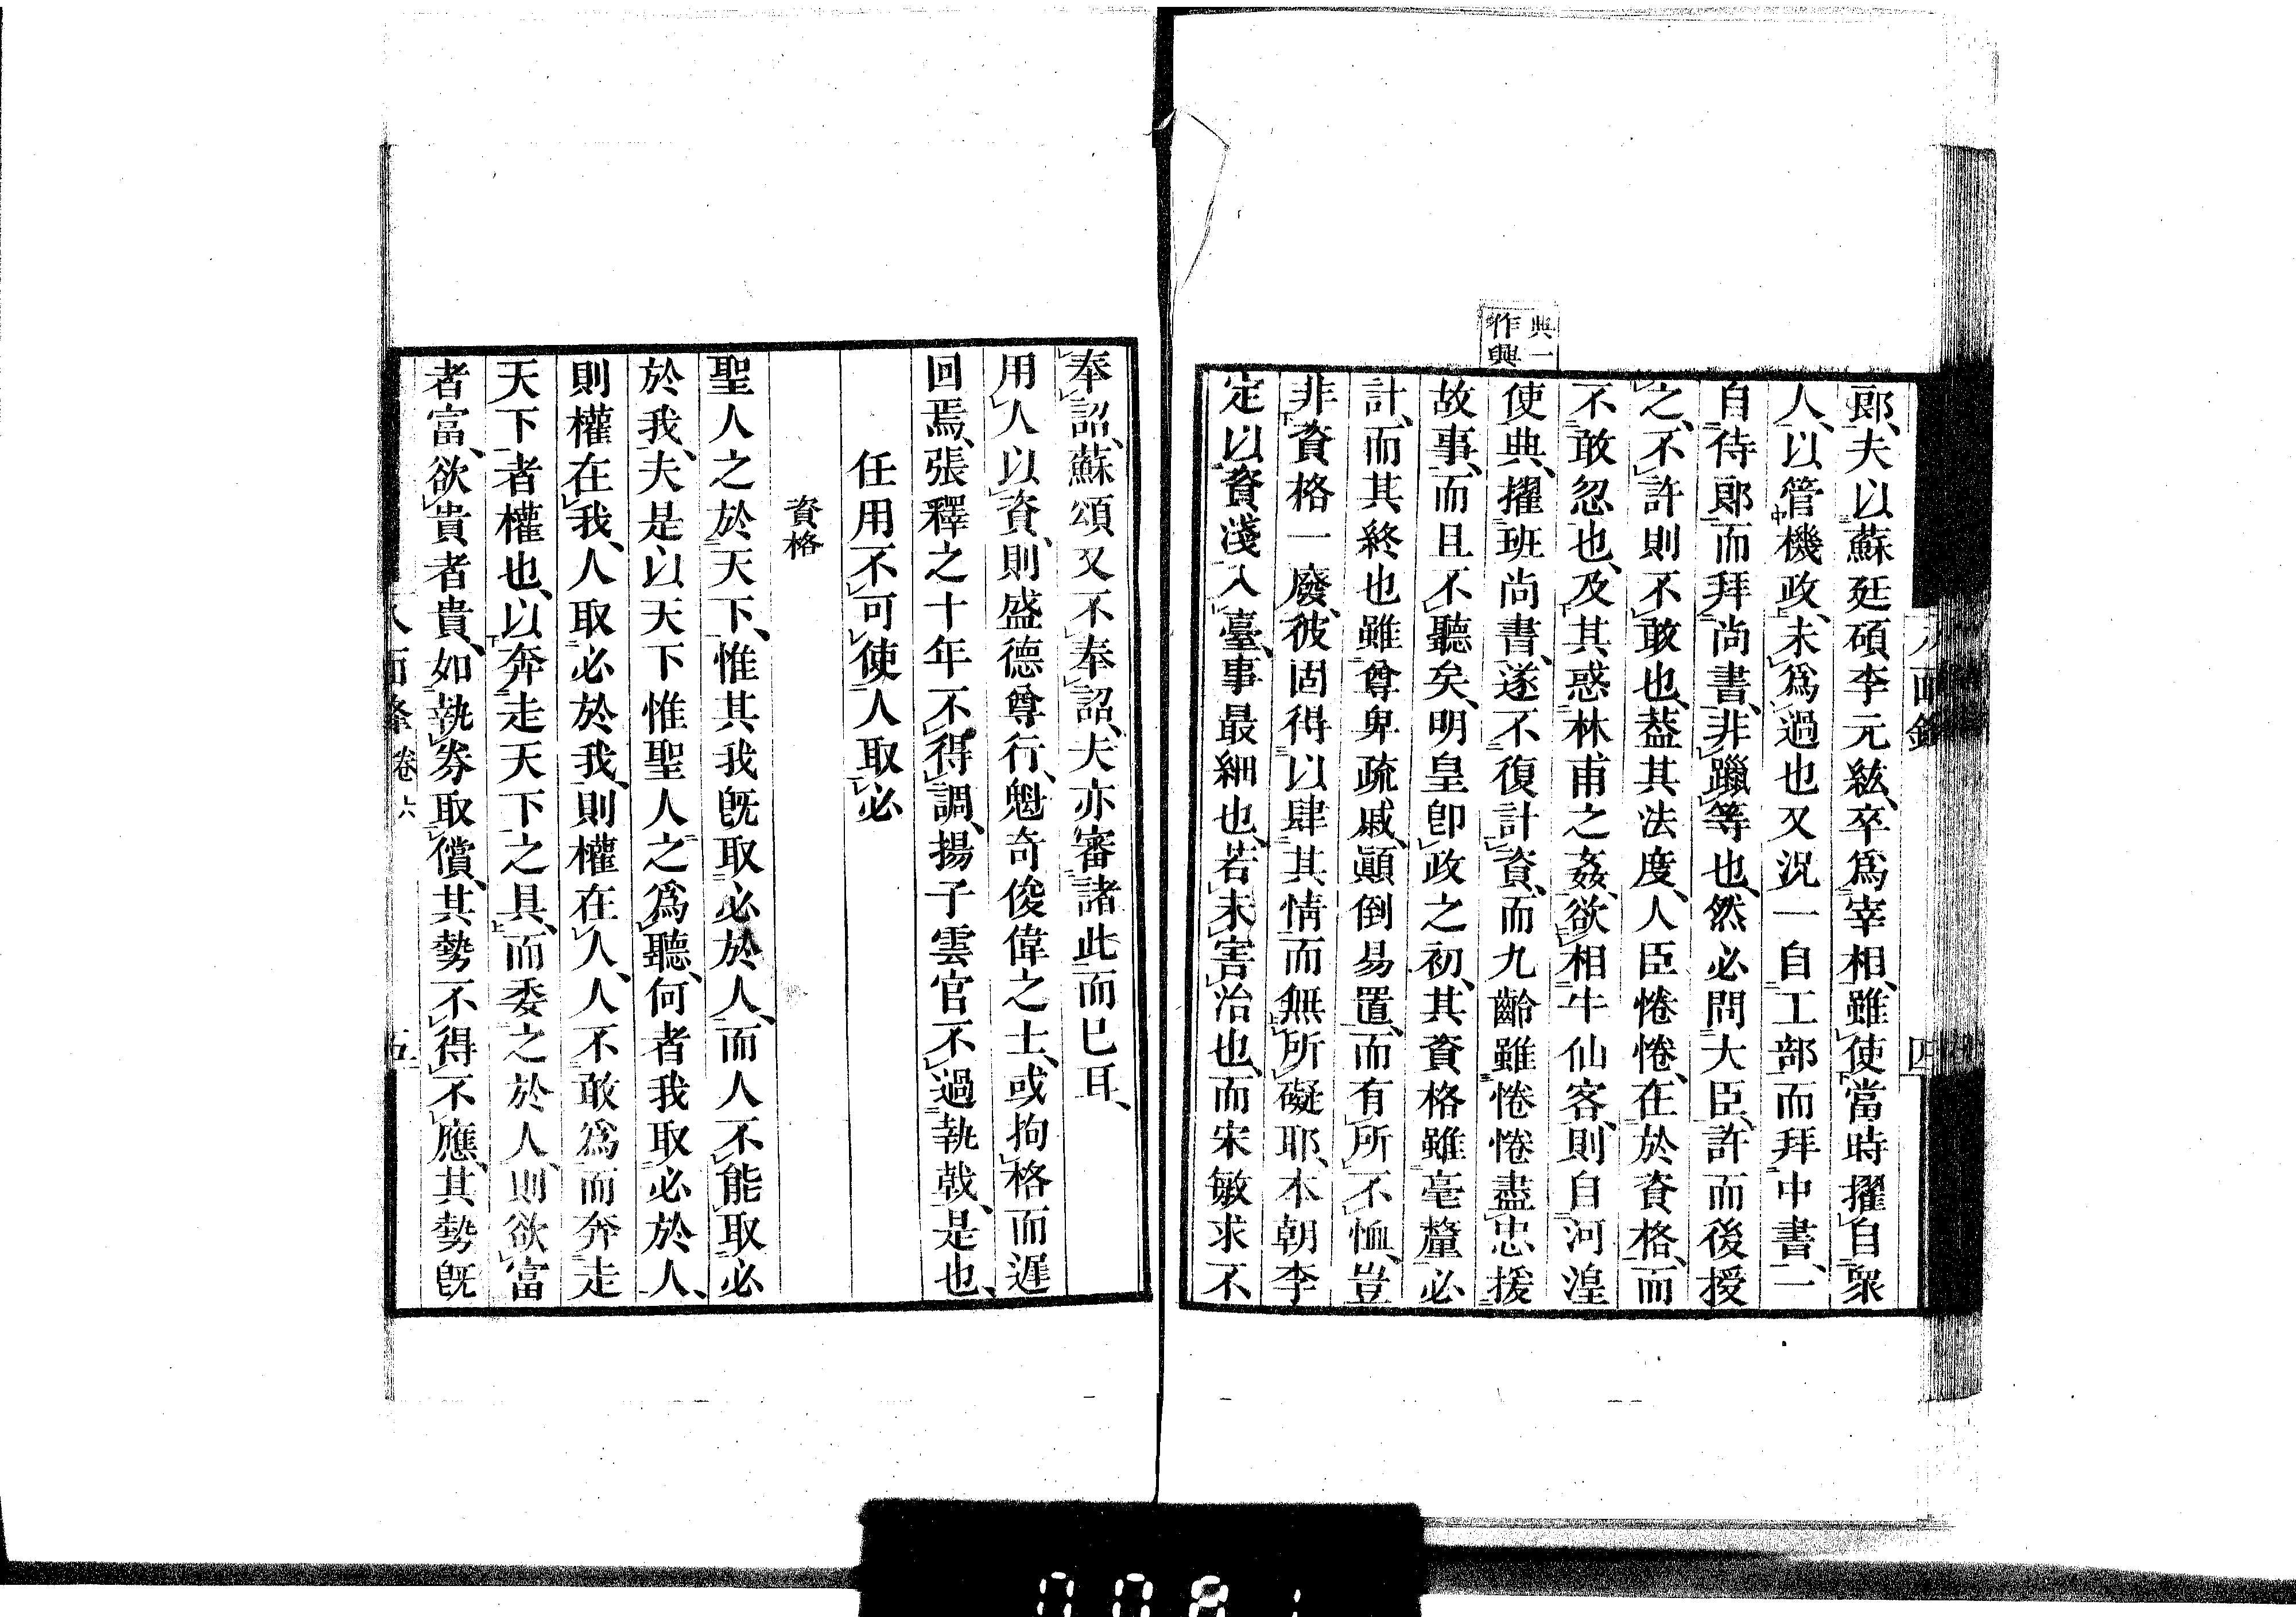 八面鋒
四
典一
作興
郎、夫以蘇廷碩李元紘、卒爲宰相、雖使當時擢自衆
人、以管機政、未爲過也又況一自工部而拜中書、一
自待郎而拜尚書、非躐等也、然必問大臣、許而後授
之、不許則不敢也、葢其法度、人臣惓惓、在於資格、而
不敢忽也、及其惑林甫之姦、欲相牛仙客、則自河湟
使典、擢班尚書、遂不復計資、而九齡雖惓惓盡忠援
故事、而且不聽矣、明皇卽政之初、其資格雖毫釐必
計、而其終也雖尊卑疏戚、顚倒易置、而有所不恤、豈
非資格一廢、彼固得以肆其情而無所礙耶、本朝李
定以資淺入臺、事最細也、若未害治也、而宋敏求不
奉詔、蘇頌又不奉詔、夫亦審諸此而已耳、
用人以資、則盛德尊行、魁奇俊偉之士、或拘格而遲
回焉、張釋之十年不得調、揚子雲官不過執戟、是也、
任用不可使人取必
資格
聖人之於天下、惟其我旣取必於人、而人不能取必
於我、夫是以天下惟聖人之爲聽、何者我取必於人、
則權在我、人取必於我、則權在人、人不敢爲而奔走
天下者權也、以奔走天下之具、而委之於人、則欲富
者富、欲貴者貴、如執券取償、其勢不得不應、其勢旣
八面鋒 卷六
五